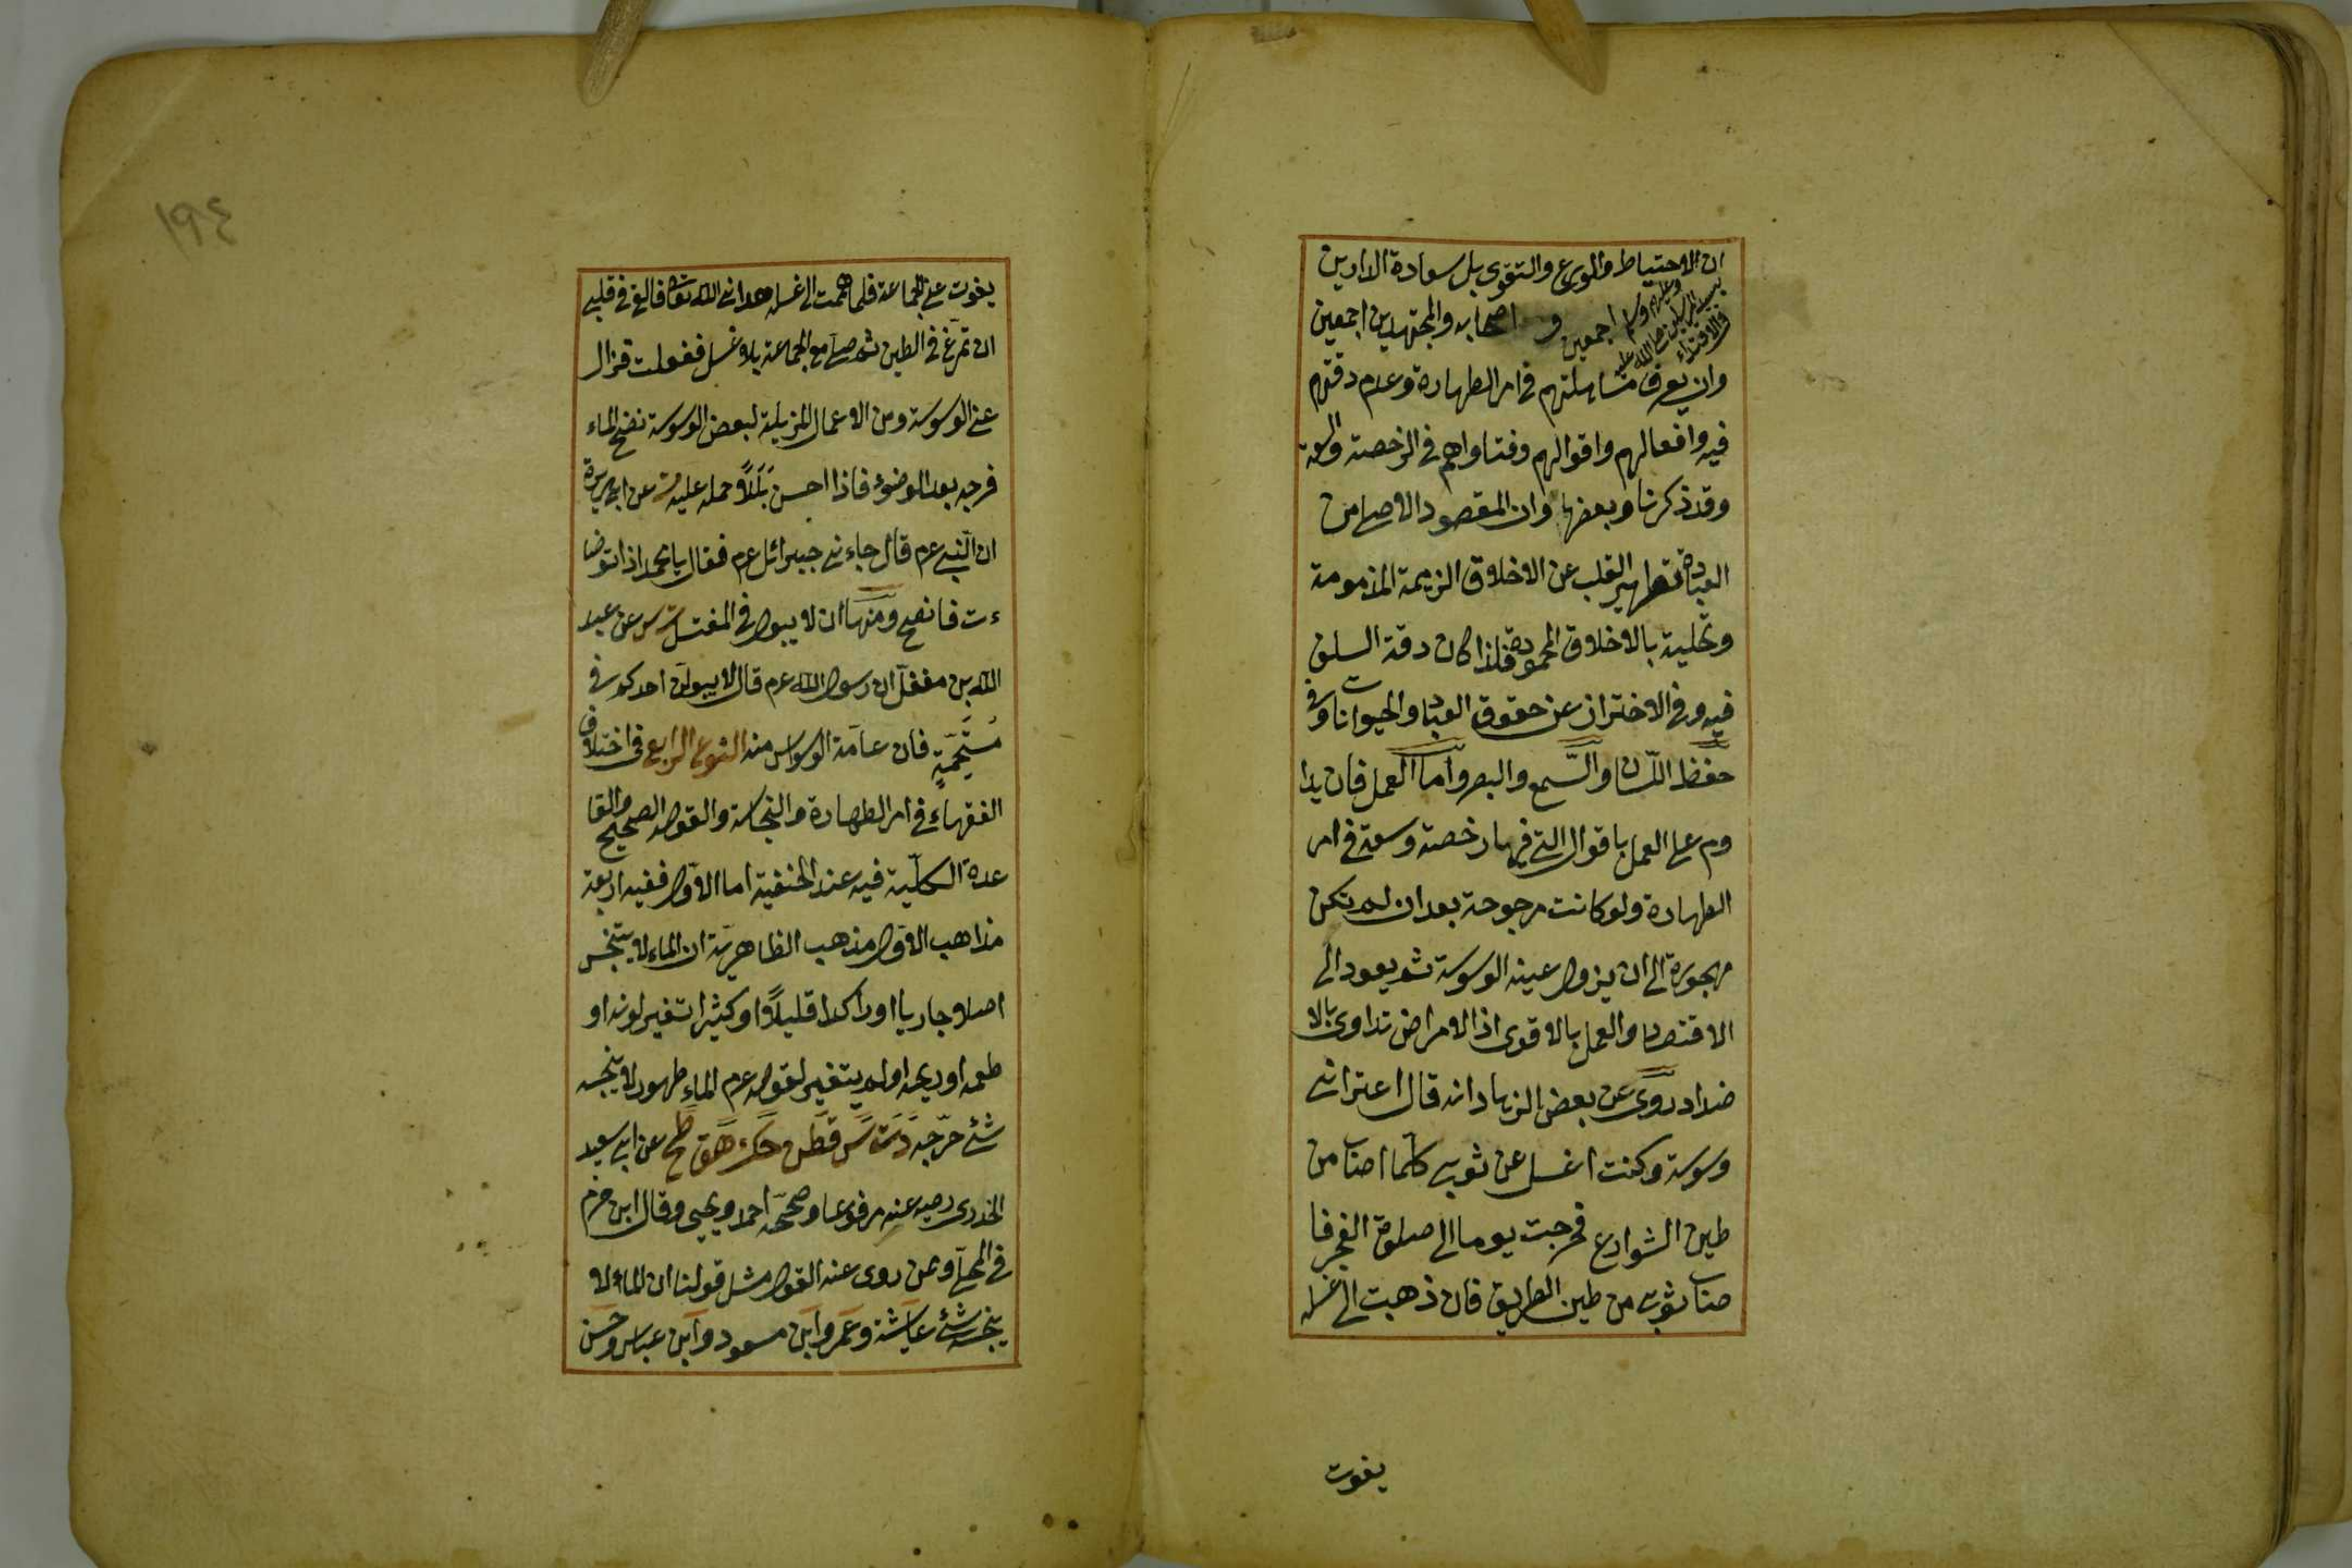 ان الاحتياط والورع والتقوى بل سعادة الدارين
في الاقتداء بسيد المرسلين صلى الله عليه وعليهم وسلم اجمعين و اصحابه والمجتهدين اجمعين
وان يعرف مساهلتهم في امر الطهارة وعدم دقتهم
فيه وافعالهم واقوالهم وفتاواهم في الرخصة والسعة
وقد ذكرنا وبعضها وان المقصود الاصلي من
العبادة تطهير القلب عن الاخلاق الذميمة المذمومة
وتحلية بالاخلاق المحمودة فلذا كان دقة السلف
فيه وفي الاحتراز عن حقوق العباد والحيوانات وفي
حفظ اللسان والسمع والبصر واما العمل فان يدا
وم على العمل باقوال التي فيها رخصة وسعة في امر
الطهارة ولو كانت مرجوحة بعد ان لم تكن
مهجورة الى ان يزول عينه الوسوسة ثم يعود الى
الاقتصاد والعمل بالاقوى اذ الامراض تداوى بالا
ضداد روى عن بعض الزهاد انه قال اعتراني
وسوسة وكنت اغسل عن ثوبي كلما اصاب من
طين الشوارع فخرجت يوما الى صلوة الفجر فا
صاب ثوبي من طين الطريق فان ذهبت الى غسله
يفوت
١٩٤
يفوت على الجماعة فلما هممت الى غسله هداني الله تعالى فالقى في قلبي
ان تمرغ في الطين ثم صل مع الجماعة بلا غسل ففعلت فزال
عنى الوسوسة ومن الاعمال المزيلة لبعض الوسوسة نضح الماء
فرجه بعد الوضوء فاذا احس بللا حمله عليه عن ابي هريرة
ان النبي عم قال جاءني جبرائل عم فقال يا محمد اذا توضا
ءت فانضح ومنها ان لا يبول في المغتسل عن عبد
الله بن مغفل ان رسول الله عم قال لا يبولن احدكم في
مستحمه فان عامة الوسواس منه النوع الرابع في اختلاف
الفقهاء في امر الطهارة والنجاسة والقول الصحيح والقا
عدة الكلية فيه عند الحنفية اما الاول ففيه اربعة
مذاهب الاول مذهب الظاهرية ان الماء لا يتنجس
اصلا جاريا او راكدا قليلا او كثيرا تغير لونه او
طعمه او ريحه او لم يتغير لقوله عم الماء طهور لا ينجسه
شئ خرجه دت س قطن وحك هق طح عن ابي سعيد
الخدرى رضيه عنه مرفوعا وصححه احمد ويحيى وقال ابن حزم
في المحلى وممن روى عنه القول مثل قولنا ان الماء لا
ينجسه شئ عايشة وعمر وابن مسعود وابن عباس وحسن